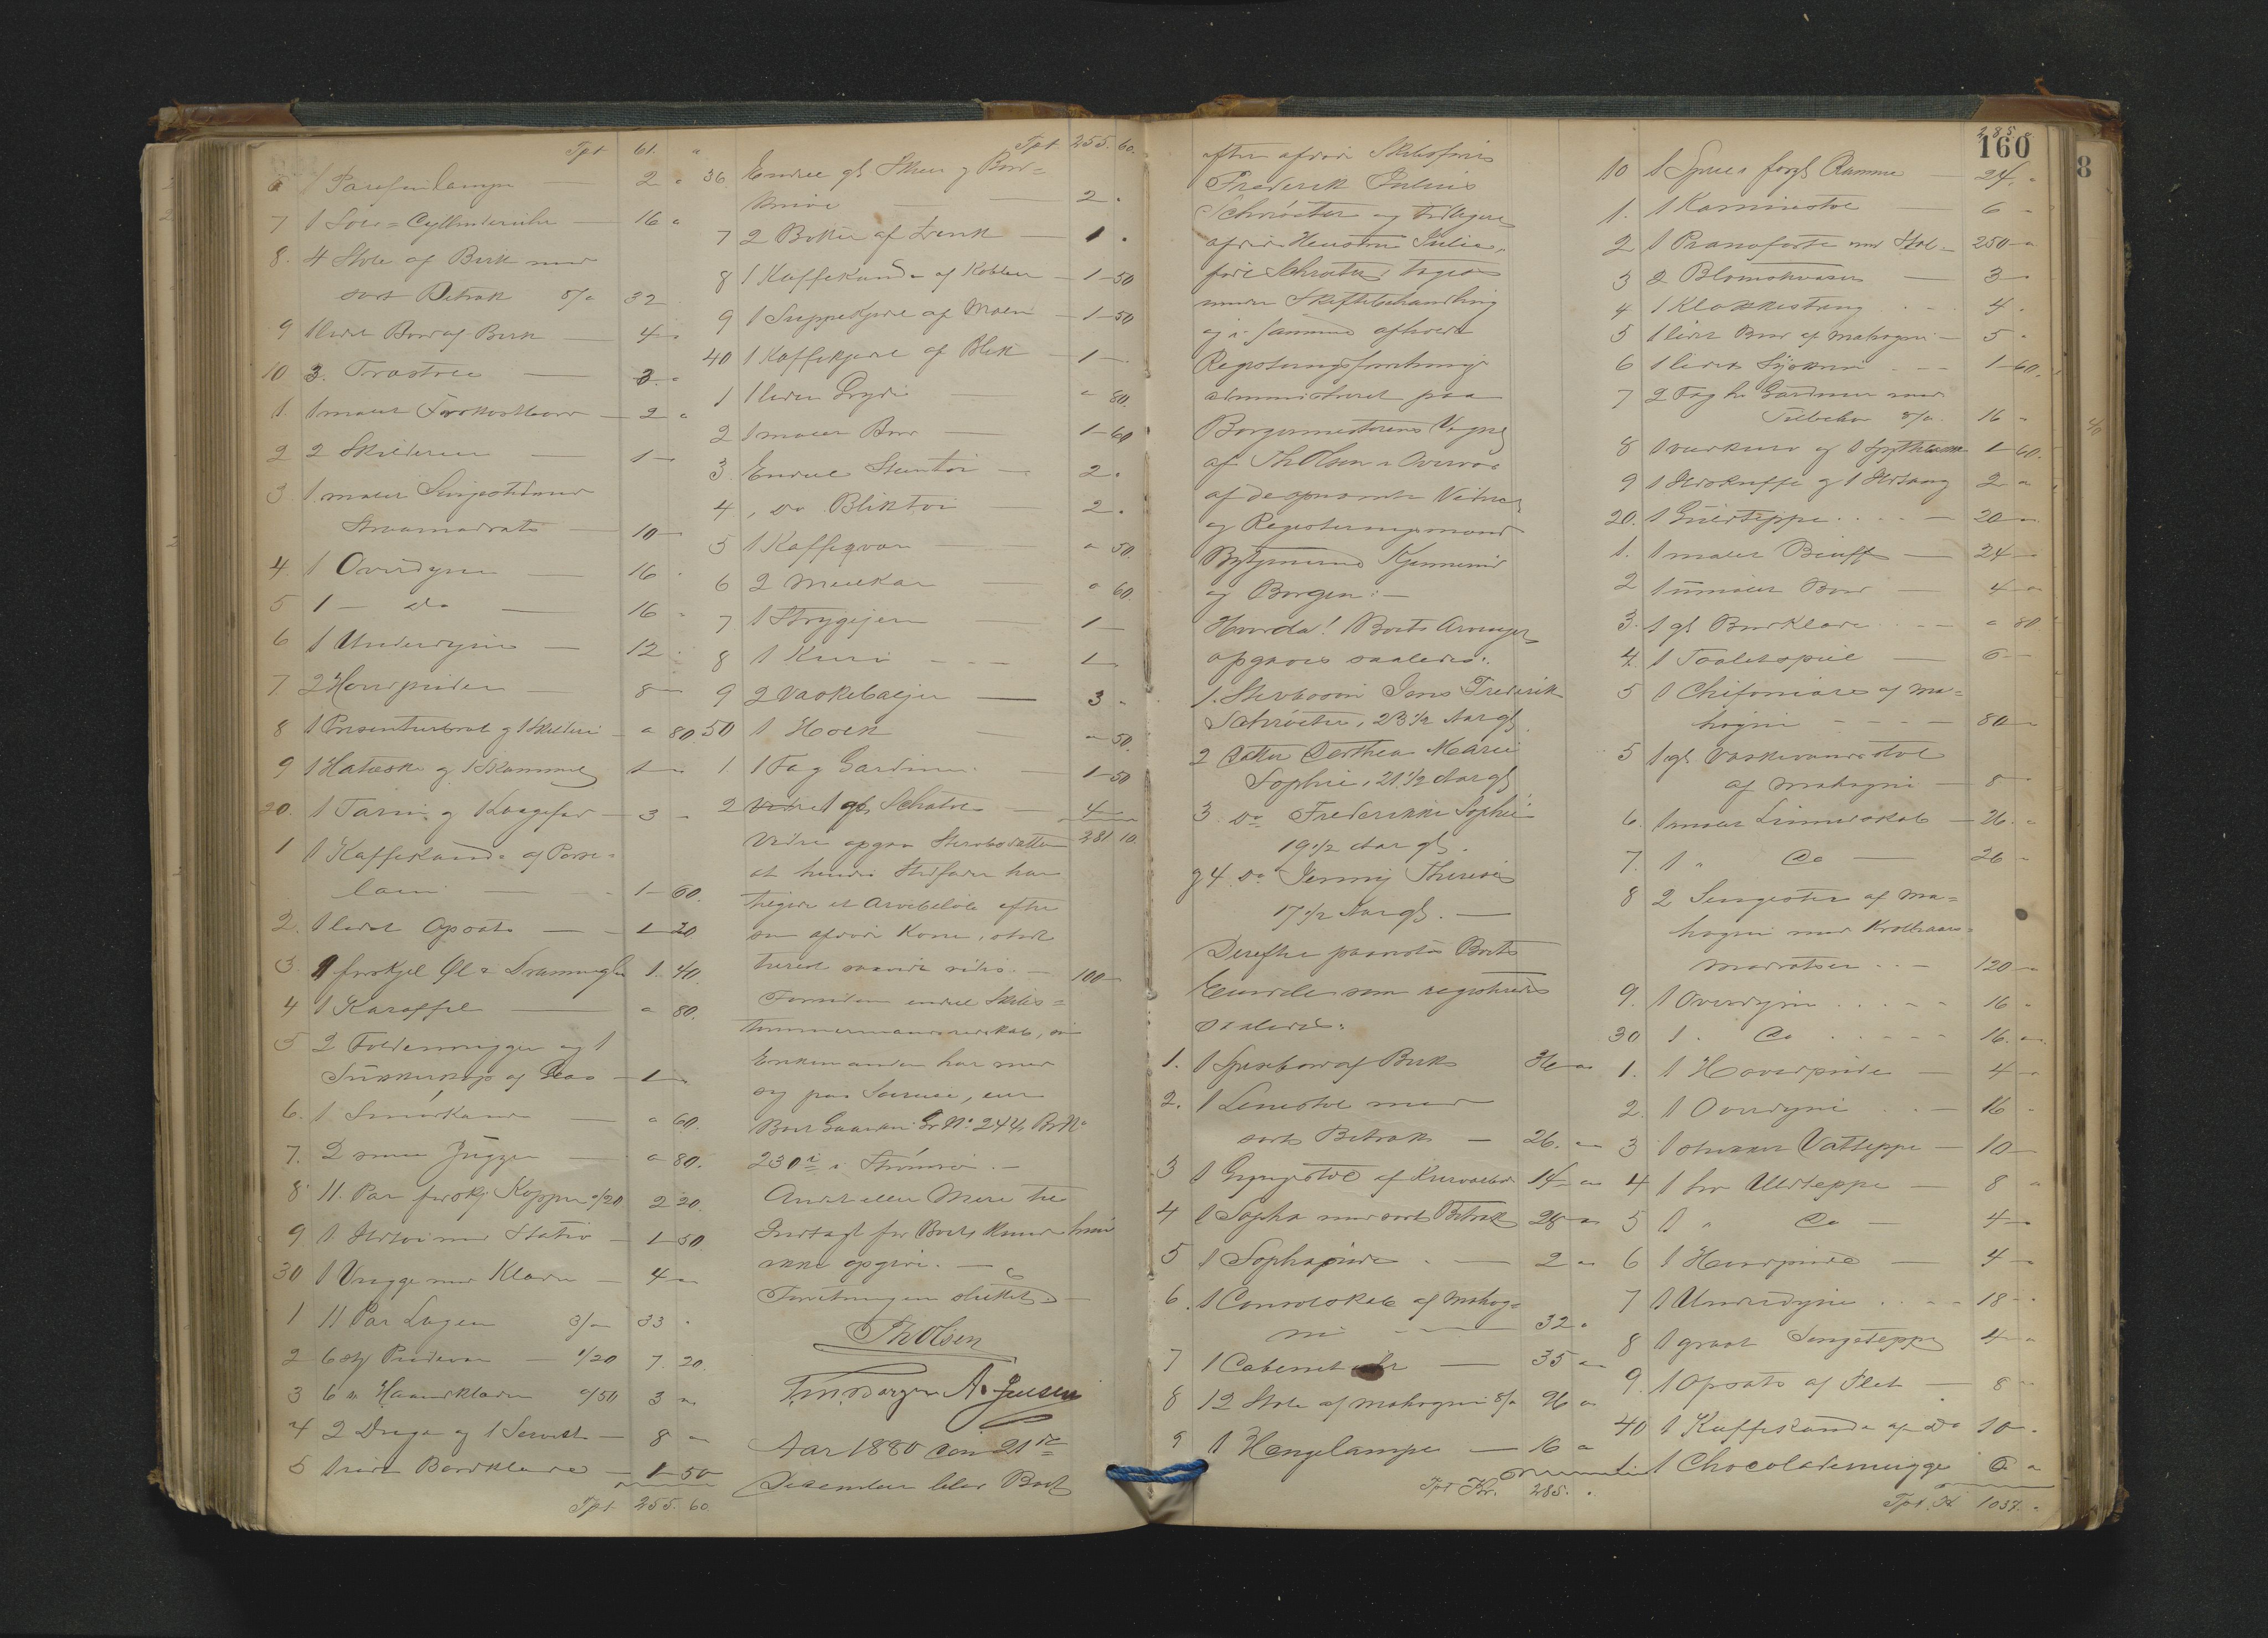 Tpt 61. "
6 1 Parafinlampe — 2 "
7 1 Solv-Cyllinderuhr — 16 "
8. 4 Stole af Birk med
sort Betræk 8/" 32
9 1 lidet Bord af Birk — 4 "
10 3. Træstole — 3. "
1. 1 malet Frokostbord — 2 "
2 2 Skilderier — 1 "
3 1 malet Sengested med
Straamadrats — 10 "
4 1 Overdyne — 16 "
5 1 — do — 16 "
6 1 Underdyne — 12 "
7. 2 Hovedpuder — 8 "
8 1 Presenterbret og 1 Skilderi — " 80
9 1 Hatæske og 1 Skammel 1 "
20. 1 Tærin og Kagefad — 3 "
1 1 Kaffekande af Porse-
lain — 1 60.
2. 1 lidet Opsats — 1 20
3. 9 forskjel Øl & Drammeglas 1 40
4 1 Karaffel — " 80.
5 2 Flødemugger og 1
Sukkerkop af Glas — 1 "
6. 1 Smørkande — " 60.
7. 2 smaa Jugger — " 80.
8 11. Par forskj. Kopper "/20 2 20.
9. 1 Urtavi med Stativ — 1 50.
30 1 Vugge med Klæder — 4 "
1 11 Par Lagen 3/" 33 "
2 6 stk Pudevar — 1/20 7. 20.
3 6 " Haandklæder "/50 3 "
4 2 Duge og 1 Serviet — 8 "
5 1 rødt Bordklæde — 1 50
Tpt. 255. 60.
Tpt 255. 60.
36 Endeel gl Skeer og Bord-
knive — 2 "
7 2 Bøtter af Zink — 1 "
8 1 Kaffekande af Kobber — 1 50
9 1 Suppekjedel af Malm — 1 50
40 1 Kaffekjedel af Blik — 1 —
1 1 liden Gryde — " 80.
2 1 malet Bord — 1 60
3. Endeel Stentøi — 2 "
4 , do Bliktøi — 2 "
5 1 Kaffeqværn — " 50.
6 2 Melkekar — " 60
7 1 Strygejern — 1 —
8 1 Kurv — 1 —
9 2 Vaskebaljer — 3 "
50 1 Holk — " 50.
1 1 Fag Gardiner — 1 50
2 1 gl, Schatol — 4 —
Videre opgav Stervbodatteren 281 10.
at hendes Stedfader har
tilgode et Arvebeløb efter
sin afdøde Kone,
saavidt vides — 100 —
Foruden endeel Skibs-
tømmermandsredskab, som
Enkemanden har med
sig paa Søreise, eier
Boet Gaarden Gr No. 244, Br No
230 i Strømsø. —
Andet eller Mere til
Indtægt for Boet kunde hun
ikke opgive. —
Forretningen sluttet —
Th Olsen
A. Jensen
Aar 1880 den 21de
December blev Boet
efter afdøde Skibsfører
Frederik Julius
Schrøeter og tidligere
afdøde Hustru Julie,
født Schrøeter, taget
under Skiftebehandling
og i samme afholdt
Registreringsforretning
administreret paa
Borgermesterens Vegne
af Th Olsen i Overvær
af de opnævnte Vidner
og Registreringsmænd
Bytjenerne Kjennerud
og Borgen: —
Hvorda! Boets Arvinger
opgaves saaledes:
1. Stervbosøn Jens Frederik
Schrøeter, 23 1/2 Aar gl,
2 Datter Dorthea Marie
Sophie, 21 1/2 Aar gl,
3. do Frederikke Sophie
19 1/2 Aar gl.
og 4. do Jenny Therese
17 1/2 Aar gl. —
Derefter paavistes Boets
Eiendele som registreredes
saaledes:
1. 1 Spisebord af Birk 36 "
2. 1 Lænestol med
sort Betræk — 26. "
3 1 Gyngestol af Kurvarbeide 14 "
4 1 Sopha med sort Betræk 28 "
5 1 Sophapude — 2 "
6. 1 Consolskab af Mahog-
ni — 32 "
7 1 Cabinet Uhr — 35 "
8 12 Stole af Mahogni 8/" 96 "
9 1 Hengelampe — 16 "
Tpt Kr. 285. "
285 "
160
8
10 1 Speil i forgl Ramme — 24. "
1. 1 Kaminstol — 6 "
2 1 Pianoforte med Stol — 250 "
3 2 Blomstervaser — 3 "
4 1 Klokkestreng — 4 "
5 1 lidet Bord af Mahogni — 5 "
6 1 lidet Syskrin — 1 60.
7 2 Fag hv Gardiner med
Tilbehør 8/" 16 "
8 1 Vedkurv og 1 Spyttebakke 1 60.
9 1 Ildskuffe og 1 Ildtang 2 "
20. 1 Gulvteppe — 20 "
1. 1 malet Buffet — 24 —
2 1 umalet Bord — 4 "
3. 1 gl Bordklæde — " 80
4. 1 Toiletspeil — 6 —
5 1 Chifoniære af Ma-
hogni — 80 "
5 1 gl. Vaskevandsstol
af Mahogni — 8 "
6. 1 malet Linnedskab — 26. "
7. 1 " Do — 26 "
8 2 Sengesteder af Ma-
hogni med Krølhaars-
madratser — 120 "
9. 1 Overdyne — 16 "
30 1 " Do — 16. "
1. 1 Hovedpude — 4 "
2. 1 Overdyne — 16 "
3 1 stukket Vatteppe — 10 —
4 1 hv Uldteppe — 8 "
5 1 " Do — 4 "
6 1 Hovedpude — 4 "
7 1 Underdyne — 18 "
8 1 graat Sengeteppe 4 "
9. 1 Opsats af Plet — 8 "
40 1 Kaffekande af Do 10 "
1. 1 Chocolademugge 6 "
Tpt. Kr 1037. "